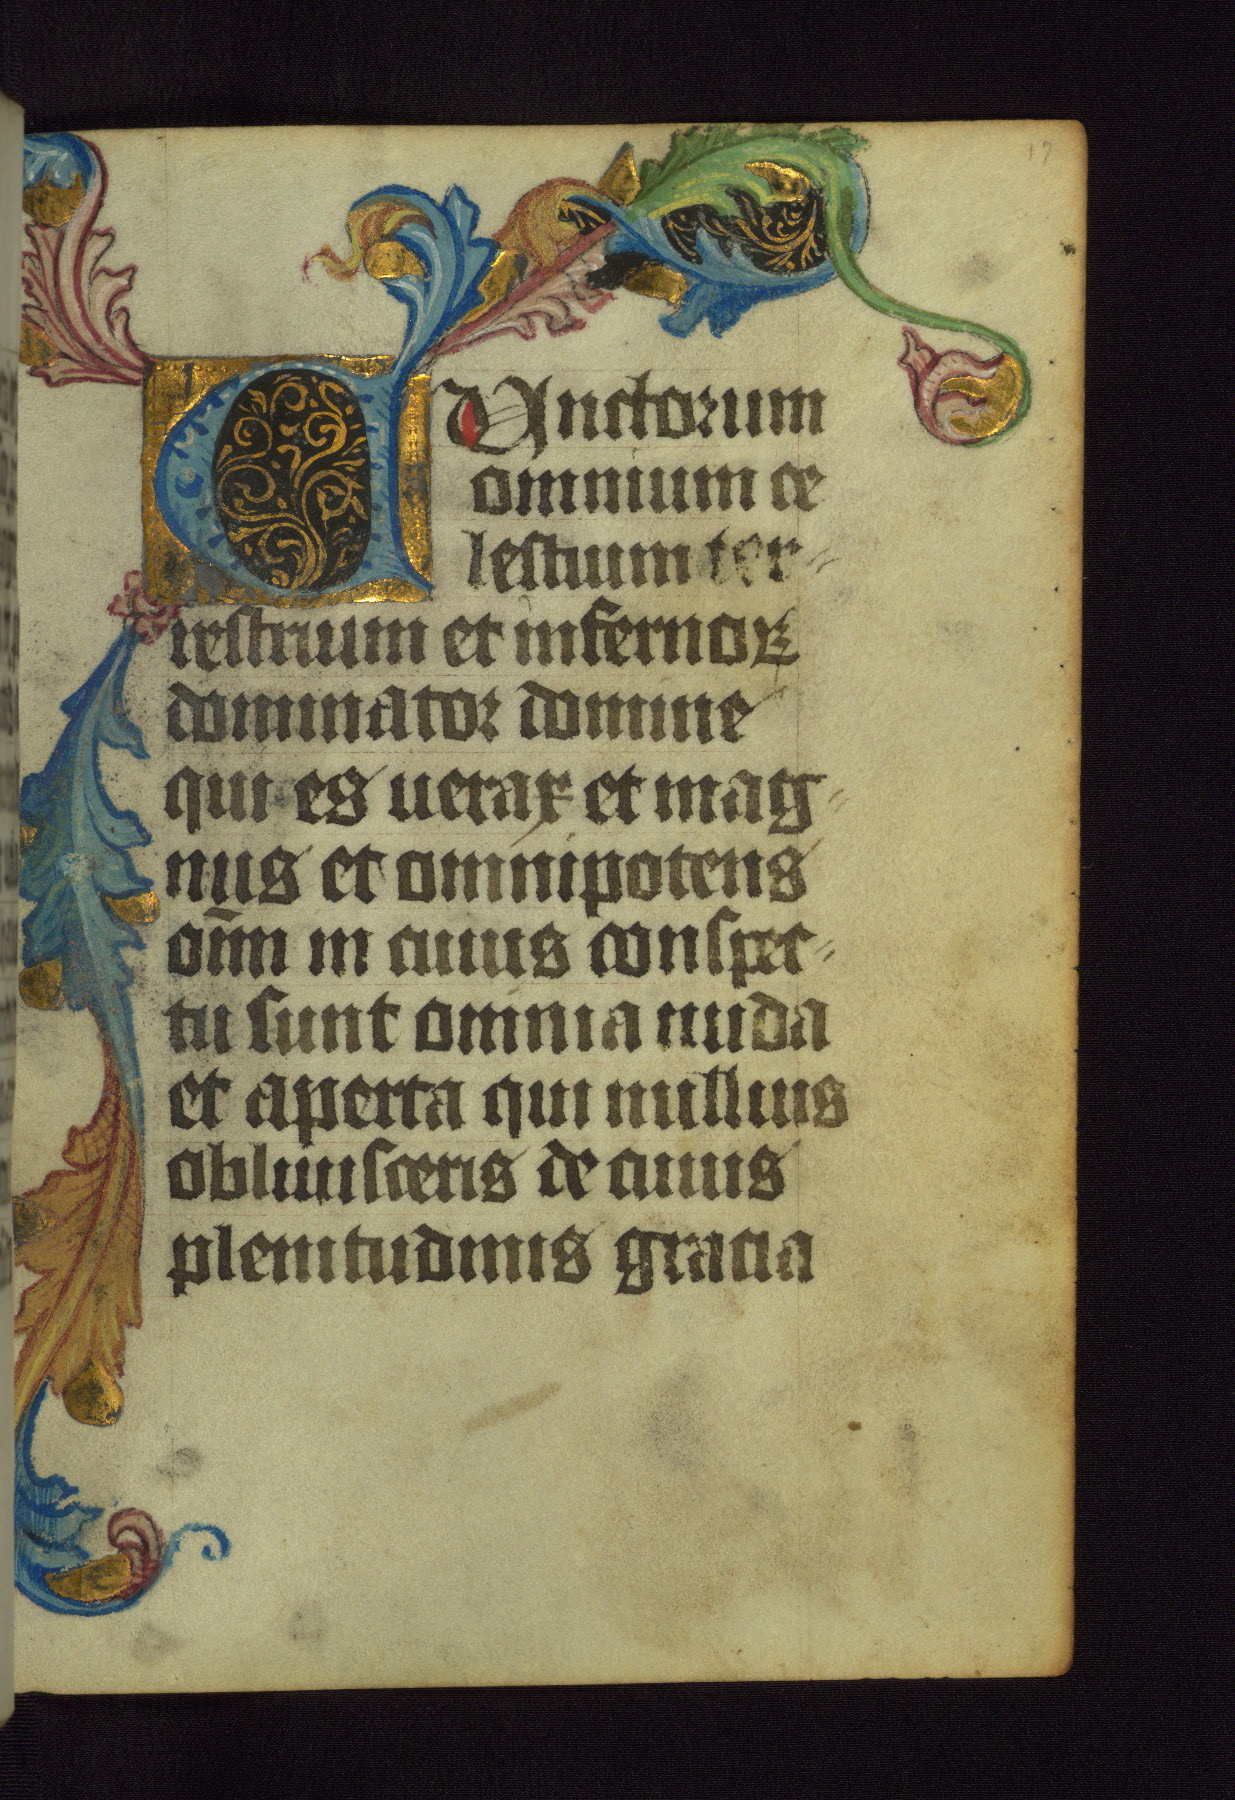 17
CUnctorum
omnium ce
lestium ter-
restrium et infernoꝝ
dominator domine
qui es uerax et mag-
nus et omnipotens
oīm in cuius conspec-
tu sunt omnia nuda
et aperta qui nullius
obliuisceris de cuius
plenitudinis gracia